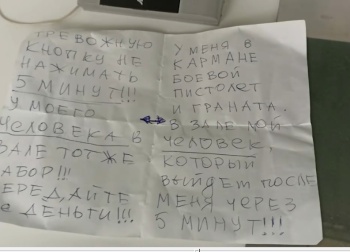 ТРЕВОЖНУЮ
КНОПКУ НЕ
НАЖИМАТЬ
5 МИНУТ!!!
У МОЕГО
ЧЕЛОВЕКА В
ЗАЛЕ ТОТ ЖЕ
НАБОР!!!
ПЕРЕДАЙТЕ
ДЕНЬГИ!!!
У МЕНЯ В
КАРМАНЕ
БОЕВОЙ
ПИСТОЛЕТ
И ГРАНАТА.
В ЗАЛЕ МОЙ
ЧЕЛОВЕК,
КОТОРЫЙ
ВЫЙДЕТ ПОСЛЕ
МЕНЯ ЧЕРЕЗ
5 МИНУТ!!!